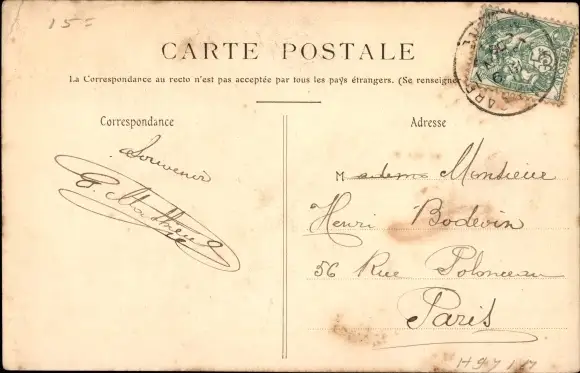 15=
CARTE POSTALE
La Correspondance au recto n'est pas acceptée par tous les pays étrangers. (Se renseigner
Correspondance
Adresse
Souvenir
M Monsieur
Henri Bodevin
56 Rue Polonceau
Paris
H9717